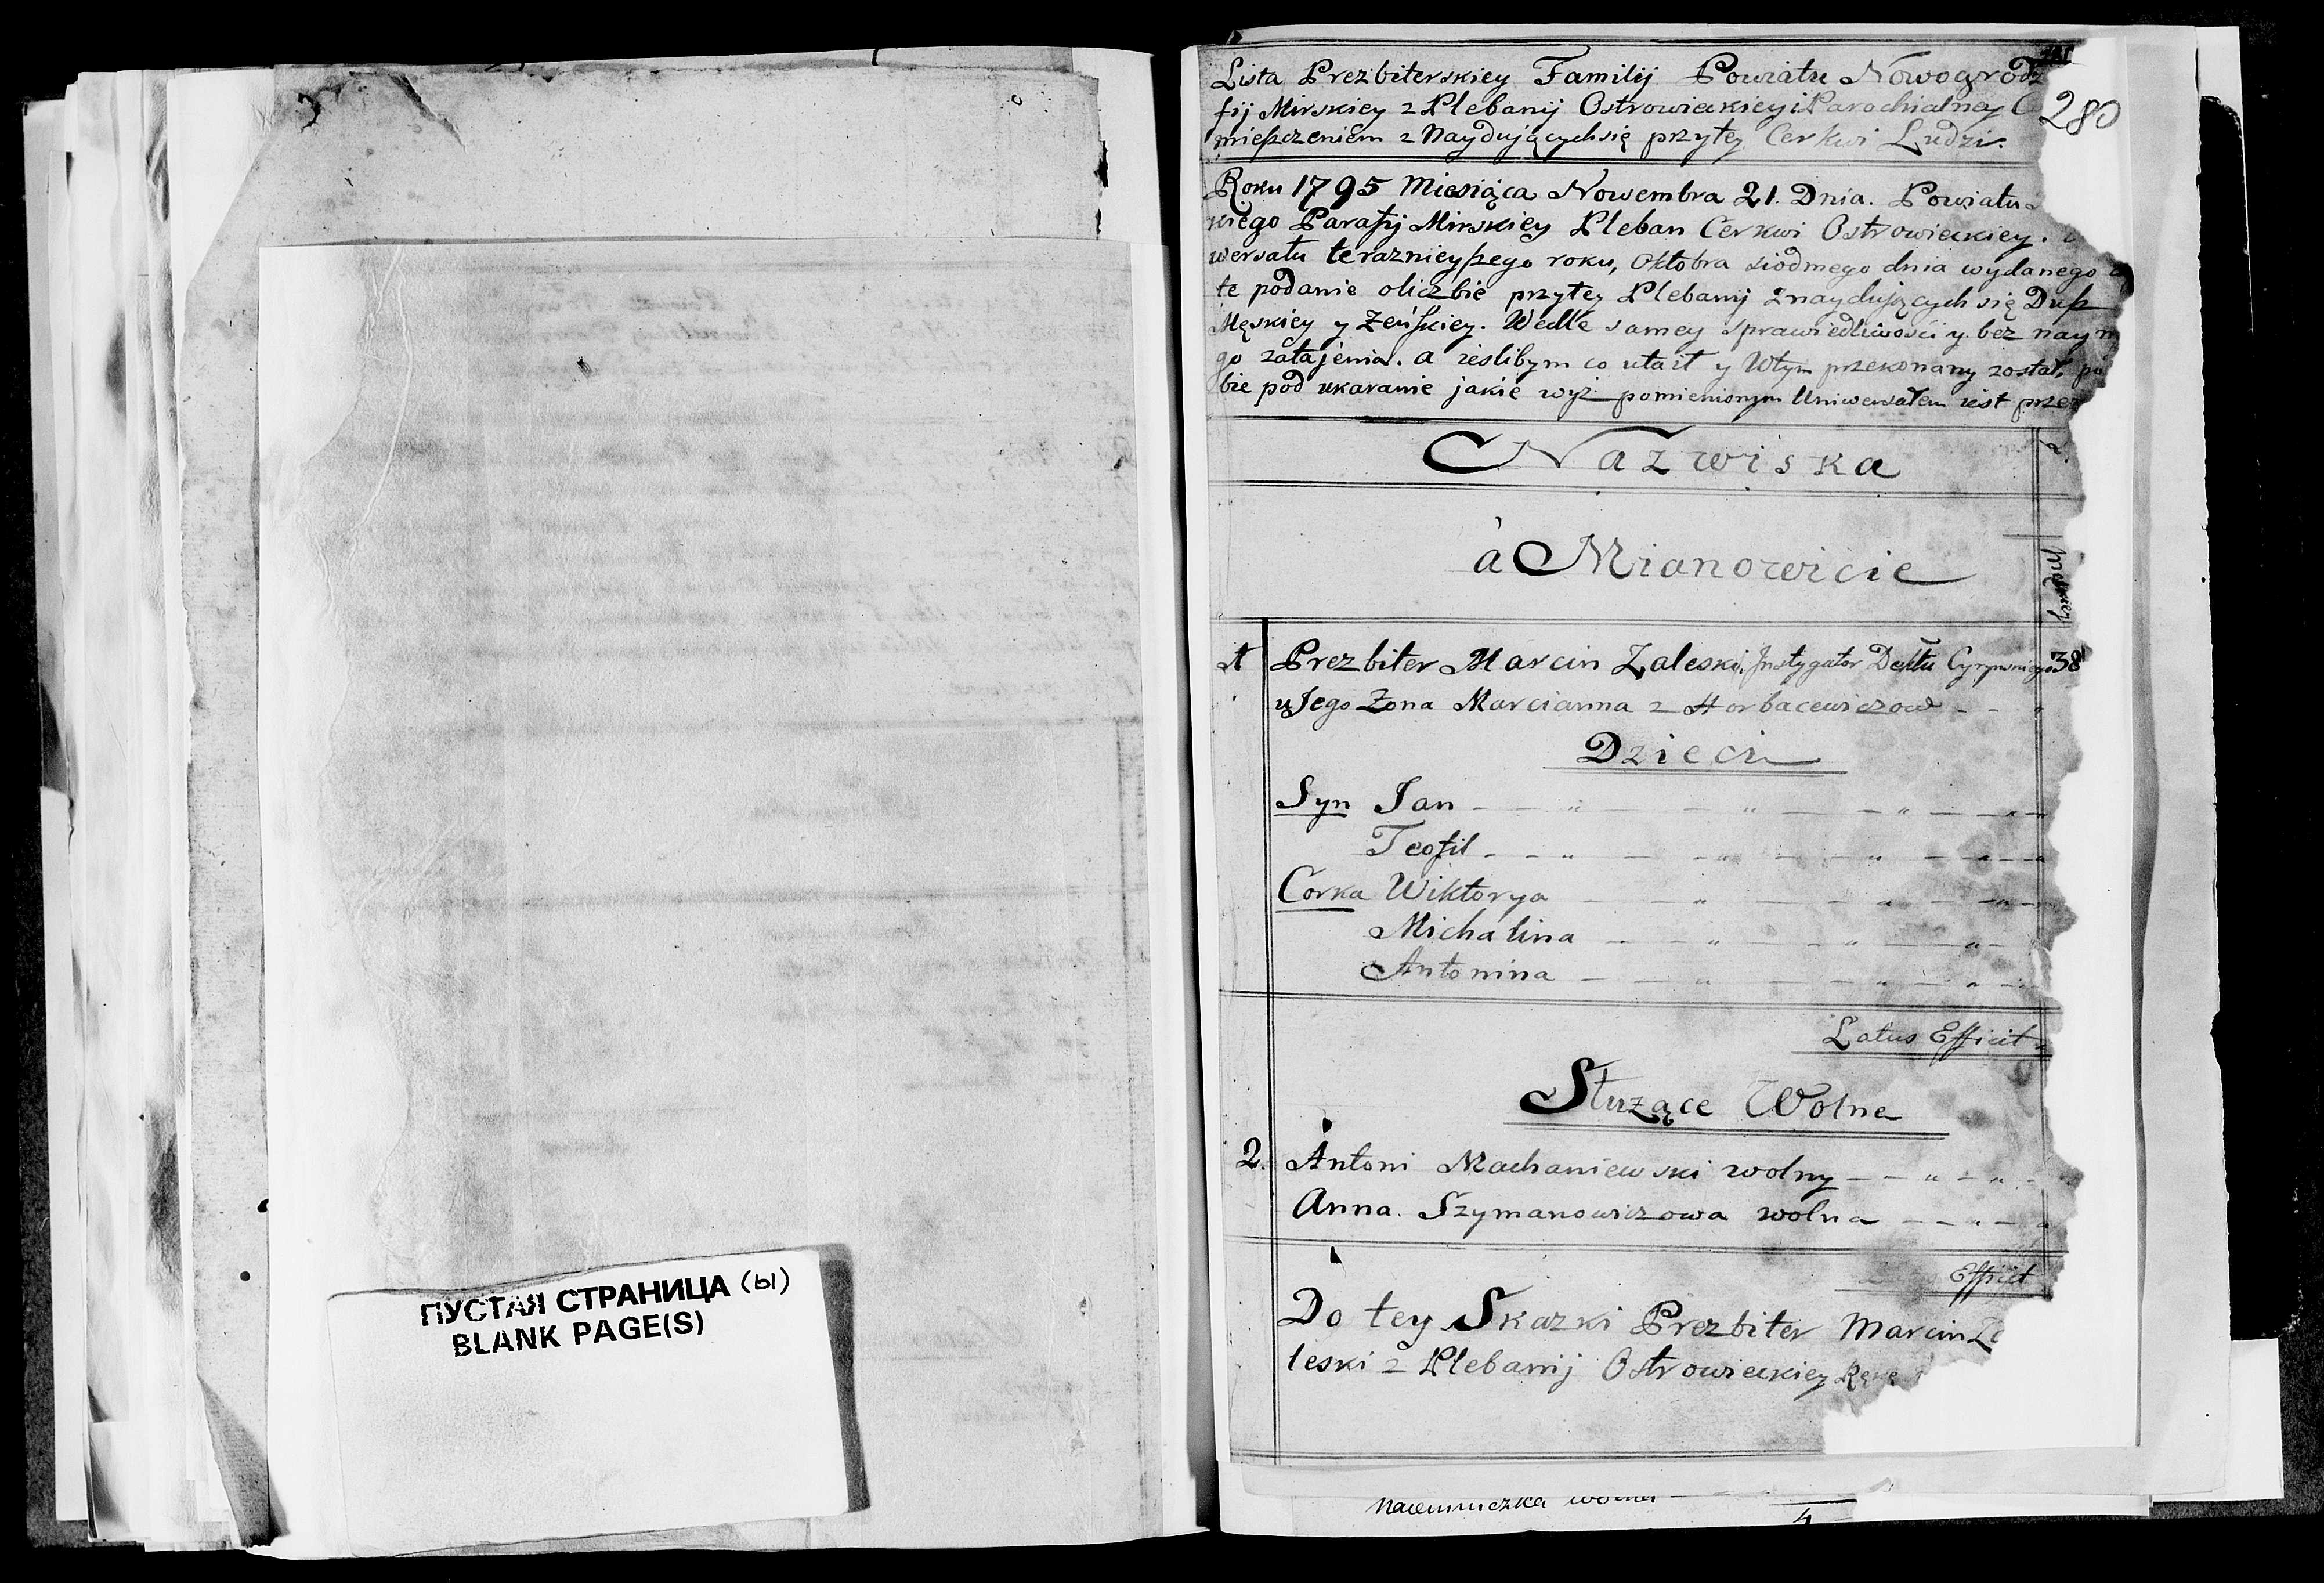 ПУСТАЯ СТРАНИЦА (ы)
BLANK PAGE(S)
280
Lista Prezbiterskiey Familij Powiatu Nowogrodz
fij Mirskiey z Plebanij Ostrowieckiey i Parochialney C
mieszczeniem znaydujących się przytey Cerkwi Ludzi.
Roku 1795 Miesiąca Nowembra 21. Dnia. Powiatu
kiego Parafij Mirskiey Pleban Cerkwi Ostrowieckiey.
wersału teraznieyszego roku, Oktobra siodmego dnia wydanego
te podanie oliczbie przytey Plebanij znaydujących się Dusz
Męskiey y Zeńskiey. Wedle samey sprawiedliwości y bez naym
go zatajenia. a ieslibym co utaił y wtym przekonany został, po
bie pod ukaranie jakie wyż pomienionym Uniwersałem iest prze
Nazwiska
à Mianowicie
Męskiey
1 Prezbiter Marcin Zaleski, Instygator Dektu 38
u Jego Zona Marcianna z Horbacewiczow
Dzieci
Syn Jan
Teofil
Corka Wiktorya
Michalina
Antonina
Latus Efficit
Służące Wolne
2. Antoni Machaniewski wolny
Anna Szymanowiczowa wolna
Efficit
Do tey Skazki Prezbiter Marcin Za
leski z Plebanij Ostrowieckiey Rękę
4